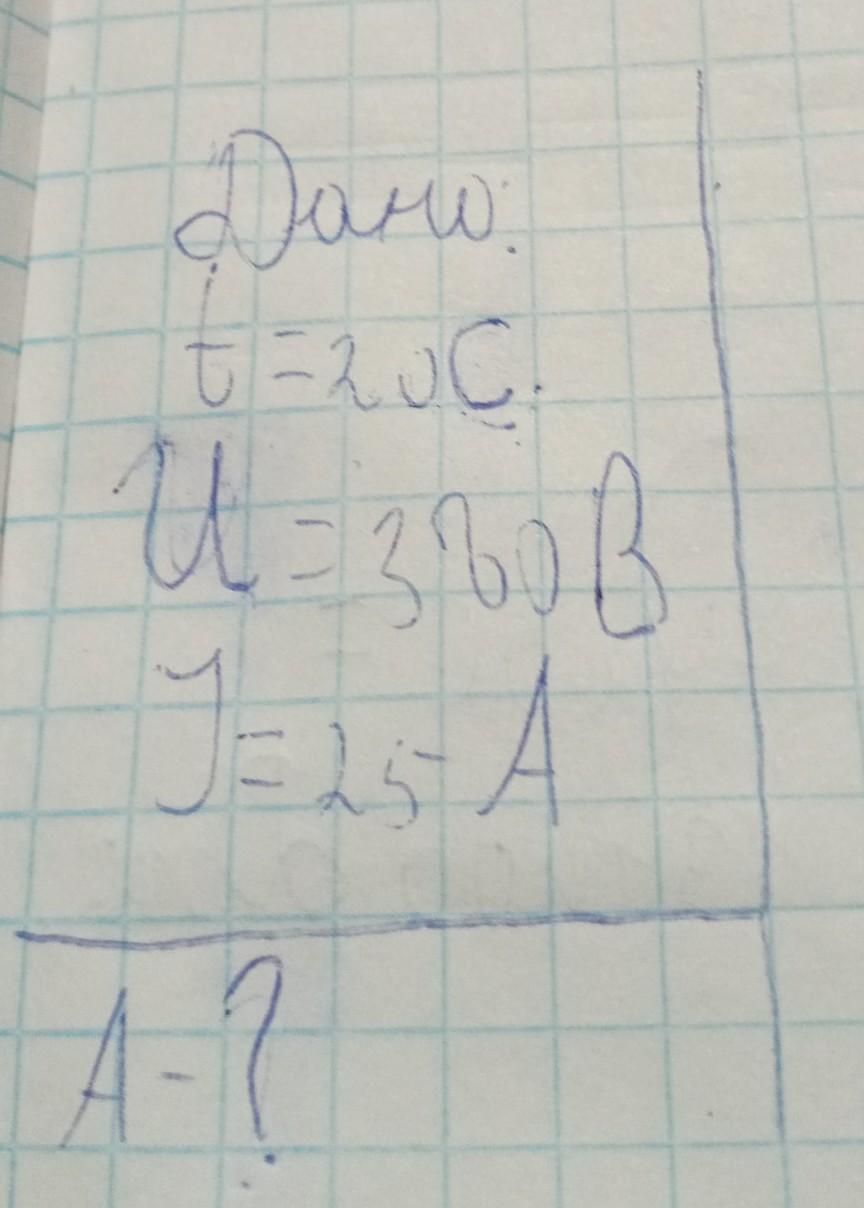 Дано:
t = 20 С.
U = 380 В
J = 25 А
А - ?